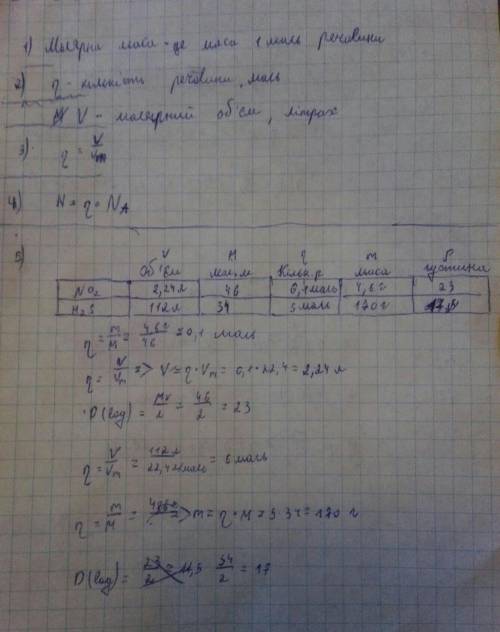 1) Молярна маса - це маса 1 моль речовини
2) η - кількість речовини, моль
V - молярний об'єм, літрах
3) η = V/Vm
4) N = η · NA
5)
V M η m ρ
Об'єм мол.м Кільк.р маса густина
NO2 2,24л 46 0,1моль 4,6г 23
H2S 112л 34 5моль 170г
η = m/M = 4,6г/46 = 0,1 моль
η = V/Vm => V = η · Vm = 0,1 · 22,4 = 2,24 л
D(вод) = Mr/2 = 46/2 = 23
η = V/Vm = 112л/22,4л/моль = 5 моль
η = m/M = => m = η · M = 5 · 34 = 170 г
D(вод) = 34/2 = 17